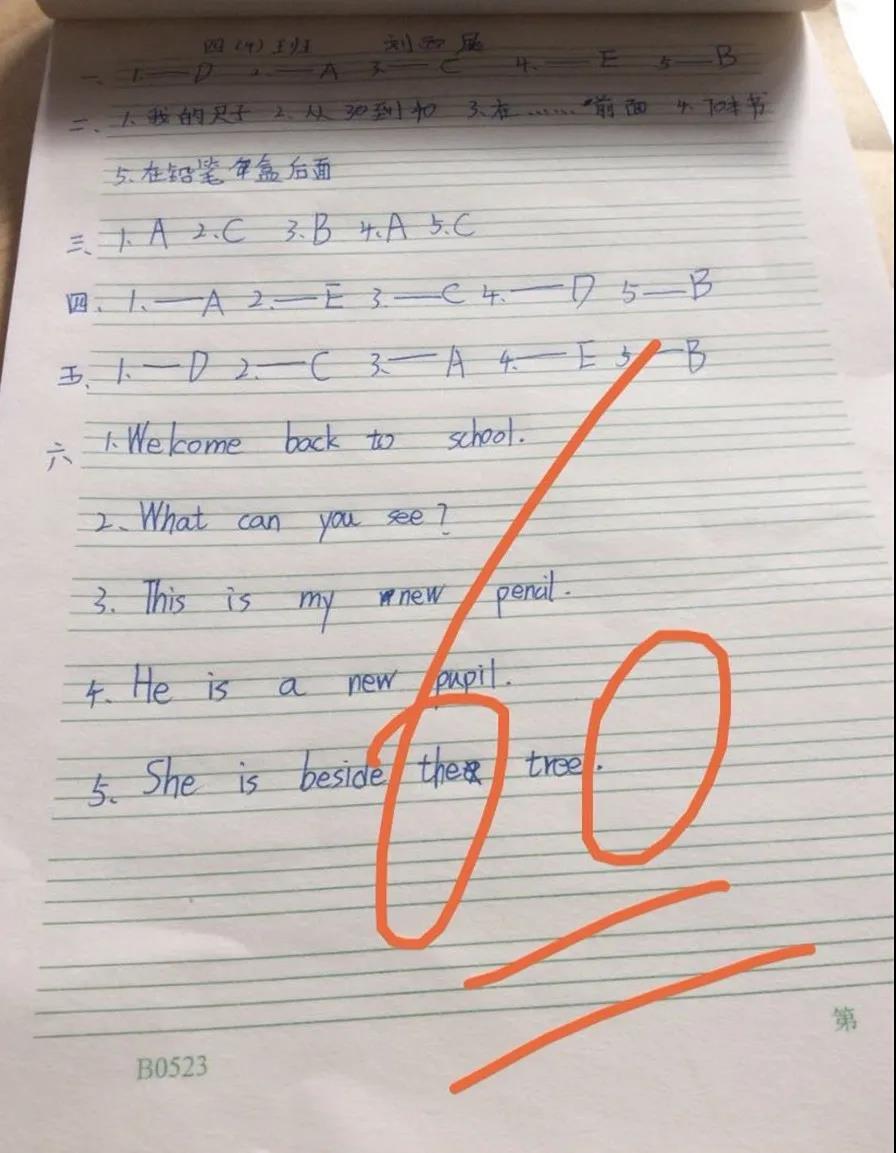 四（4）班 刘西
一、 1.—D 2.—A 3.—C 4.—E 5—B
二、 1.我的尺子 2.从30到40 3.在……前面 4.70本书
5.在铅笔盒后面
三、 1.A 2.C 3.B 4.A 5.C
四. 1.—A 2.—E 3.—C 4.—D 5—B
五. 1.—D 2.—C 3.—A 4.—E 5—B
六 1.Welcome back to school.
2、What can you see?
3. This is my new pencil.
4. He is a new pupil.
5. She is beside the tree.
100
第
B0523